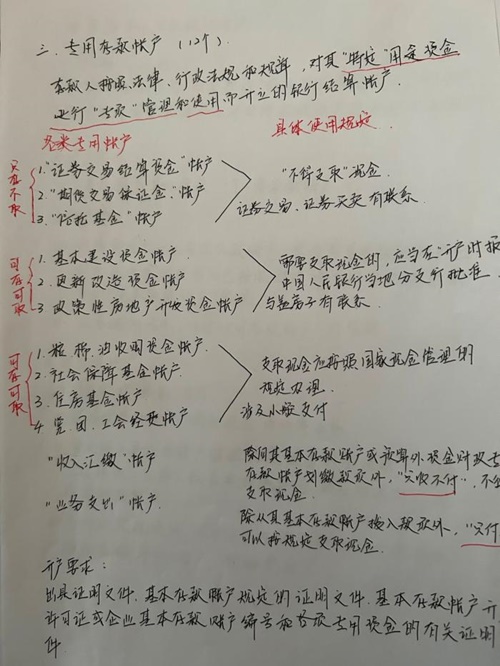 三、专用存款帐户（12个）.
存款人按照法律、行政法规和规章，对其"特定"用途资金
进行"专项"管理和使用而开立的银行结算帐户.
各类专用帐户
具体使用规定.
只存不取
1."证券交易结算资金"帐户
2."期货交易保证金."帐户
3."信托基金"帐户
"不得支取"现金.
证券交易、证券买卖有联系
可存可取
1. 基本建设资金帐户
2. 更新改造资金帐户
3 政策性房地产开发资金帐户
需要支取现金的，应当在"开户时报
中国人民银行当地分支行批准.
与盖房子有联系
可存可取
1. 粮、棉、油收购资金帐户.
2. 社会保障基金帐户.
3. 住房基金帐户
4. 党、团、工会经费帐户
支取现金应按照国家现金管理的
规定办理
涉及小额支付
"收入汇缴"帐户
除向其基本存款账户或预算外资金财政专
存款帐户划缴款项外，"只收不付"，不
支取现金.
"业务支出"帐户.
除从其基本存款账户拨入款项外，"只付
可以按规定支取现金.
开户要求：
出具证明文件、基本存款帐户规定的证明文件、基本存款帐户开
许可证或企业基本存款账户编号和各项专用资金的有关证明
件